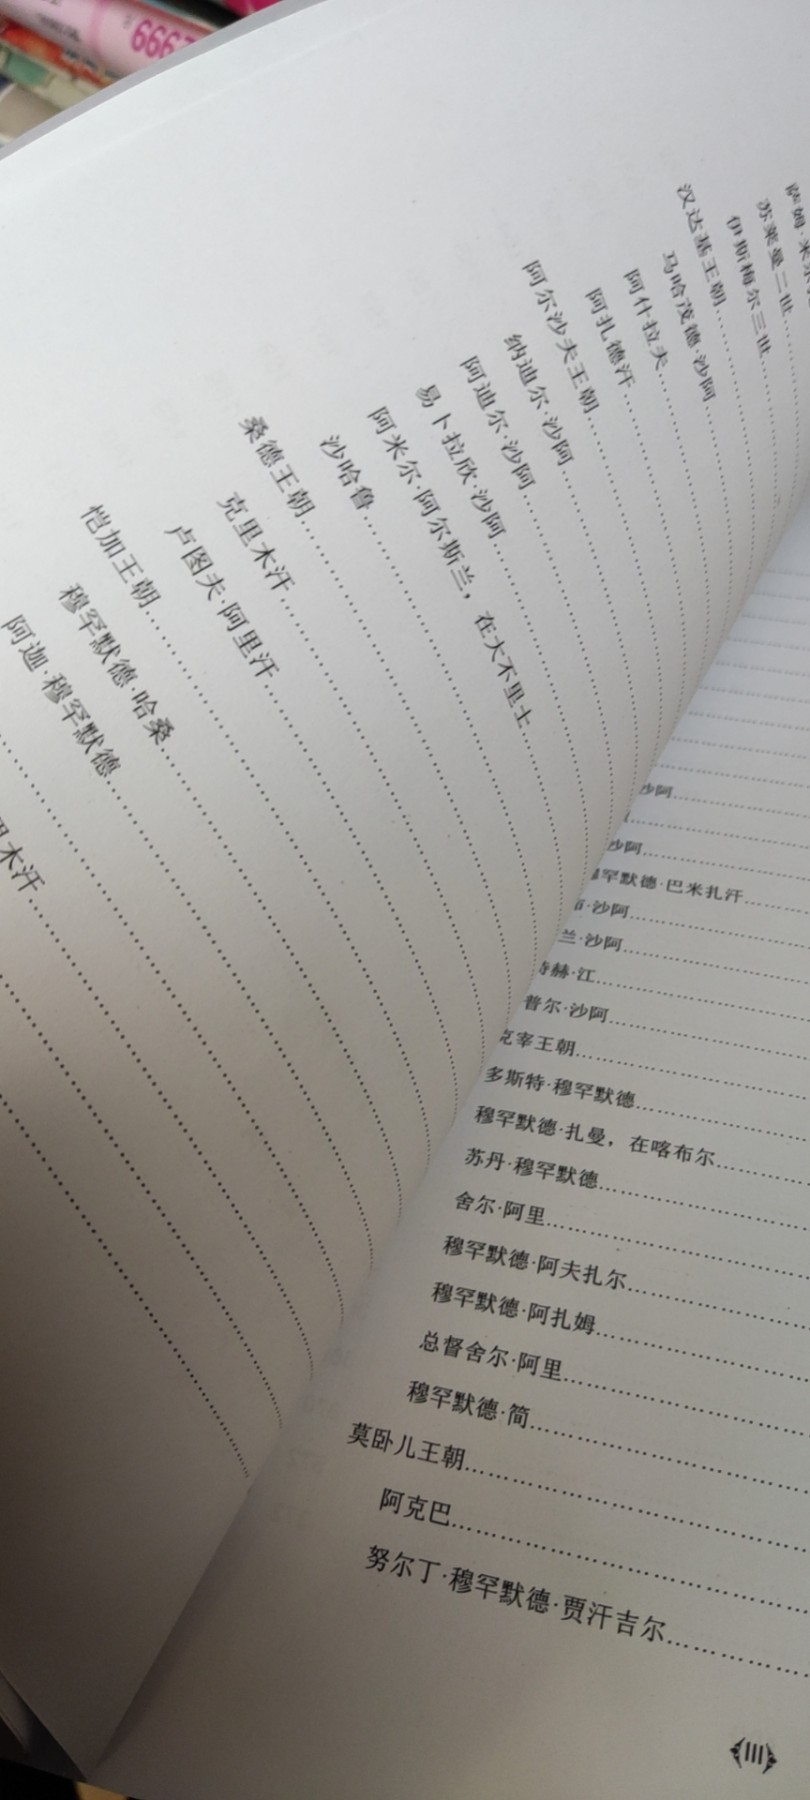 999
萨姆·
苏莱曼二世
伊斯梅尔三世
汉达基王朝
马哈茂德·沙阿
阿什拉夫
阿扎德汗
阿尔沙夫王朝
纳迪尔·沙阿
阿迪尔·沙阿
易卜拉欣·沙阿
阿米尔·阿尔斯兰，在大不里士
沙哈鲁
桑德王朝
克里木汗
卢图夫·阿里汗
恺加王朝
穆罕默德·哈桑
阿迦·穆罕默德
木汗
沙阿
沙阿
罕默德·巴米扎汗
·沙阿
兰·沙阿
赫·江
普尔·沙阿
克宰王朝
多斯特·穆罕默德
穆罕默德·扎曼，在喀布尔
苏丹·穆罕默德
舍尔·阿里
穆罕默德·阿夫扎尔
穆罕默德·阿扎姆
总督舍尔·阿里
穆罕默德·简
莫卧儿王朝
阿克巴
努尔丁·穆罕默德·贾汗吉尔
III